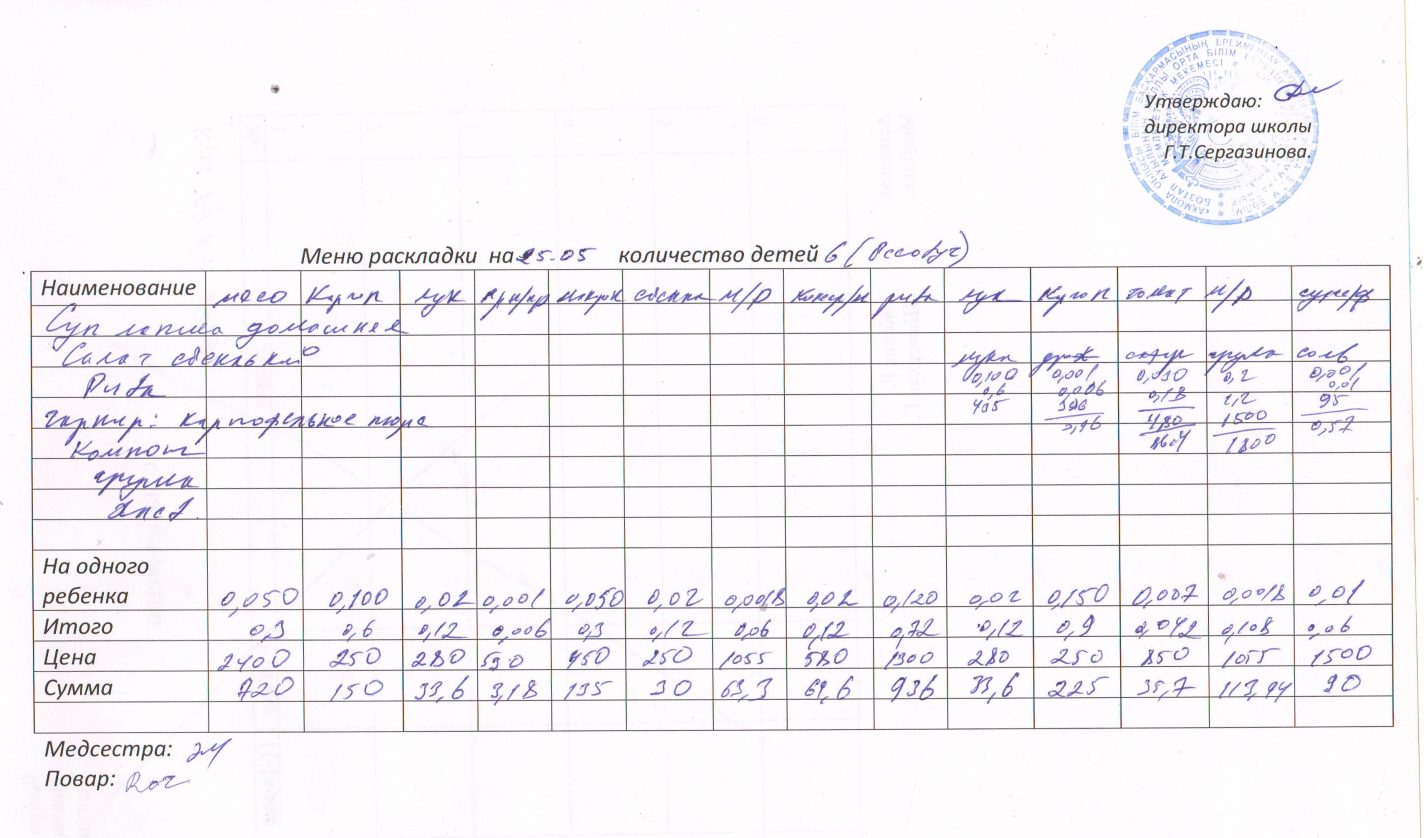 Утверждаю:
директора школы
Г.Т.Сергазинова.
Меню раскладки на 25.05 количество детей 6 (
Наименование мясо Картоп лук макрон свекла М/Р рыба лук Картоп томат М/Р
Суп лапша домашняя
Салат мука дрож сахар груша соль
0,100 0,001 0,030 0,2 0,001
Рыба 0,6 0,006 0,18 1,2 0,01
495 1500 95
гарнир: Картофельное пюре 480 0,57
Компот 1800
груша
Хлеб.
На одного
ребенка 0,050 0,100 0,02 0,001 0,050 0,02 0,0018 0,02 0,120 0,02 0,150 0,007 0,0018 0,01
Итого 0,3 0,6 0,12 0,006 0,3 0,12 0,06 0,12 0,72 0,12 0,9 0,042 0,108 0,06
Цена 2400 250 280 530 450 250 1055 580 1300 280 250 850 1055 1500
Сумма 720 150 33,6 3,18 135 30 63,3 69,6 936 33,6 225 35,7 113,94 90
Медсестра:
Повар: